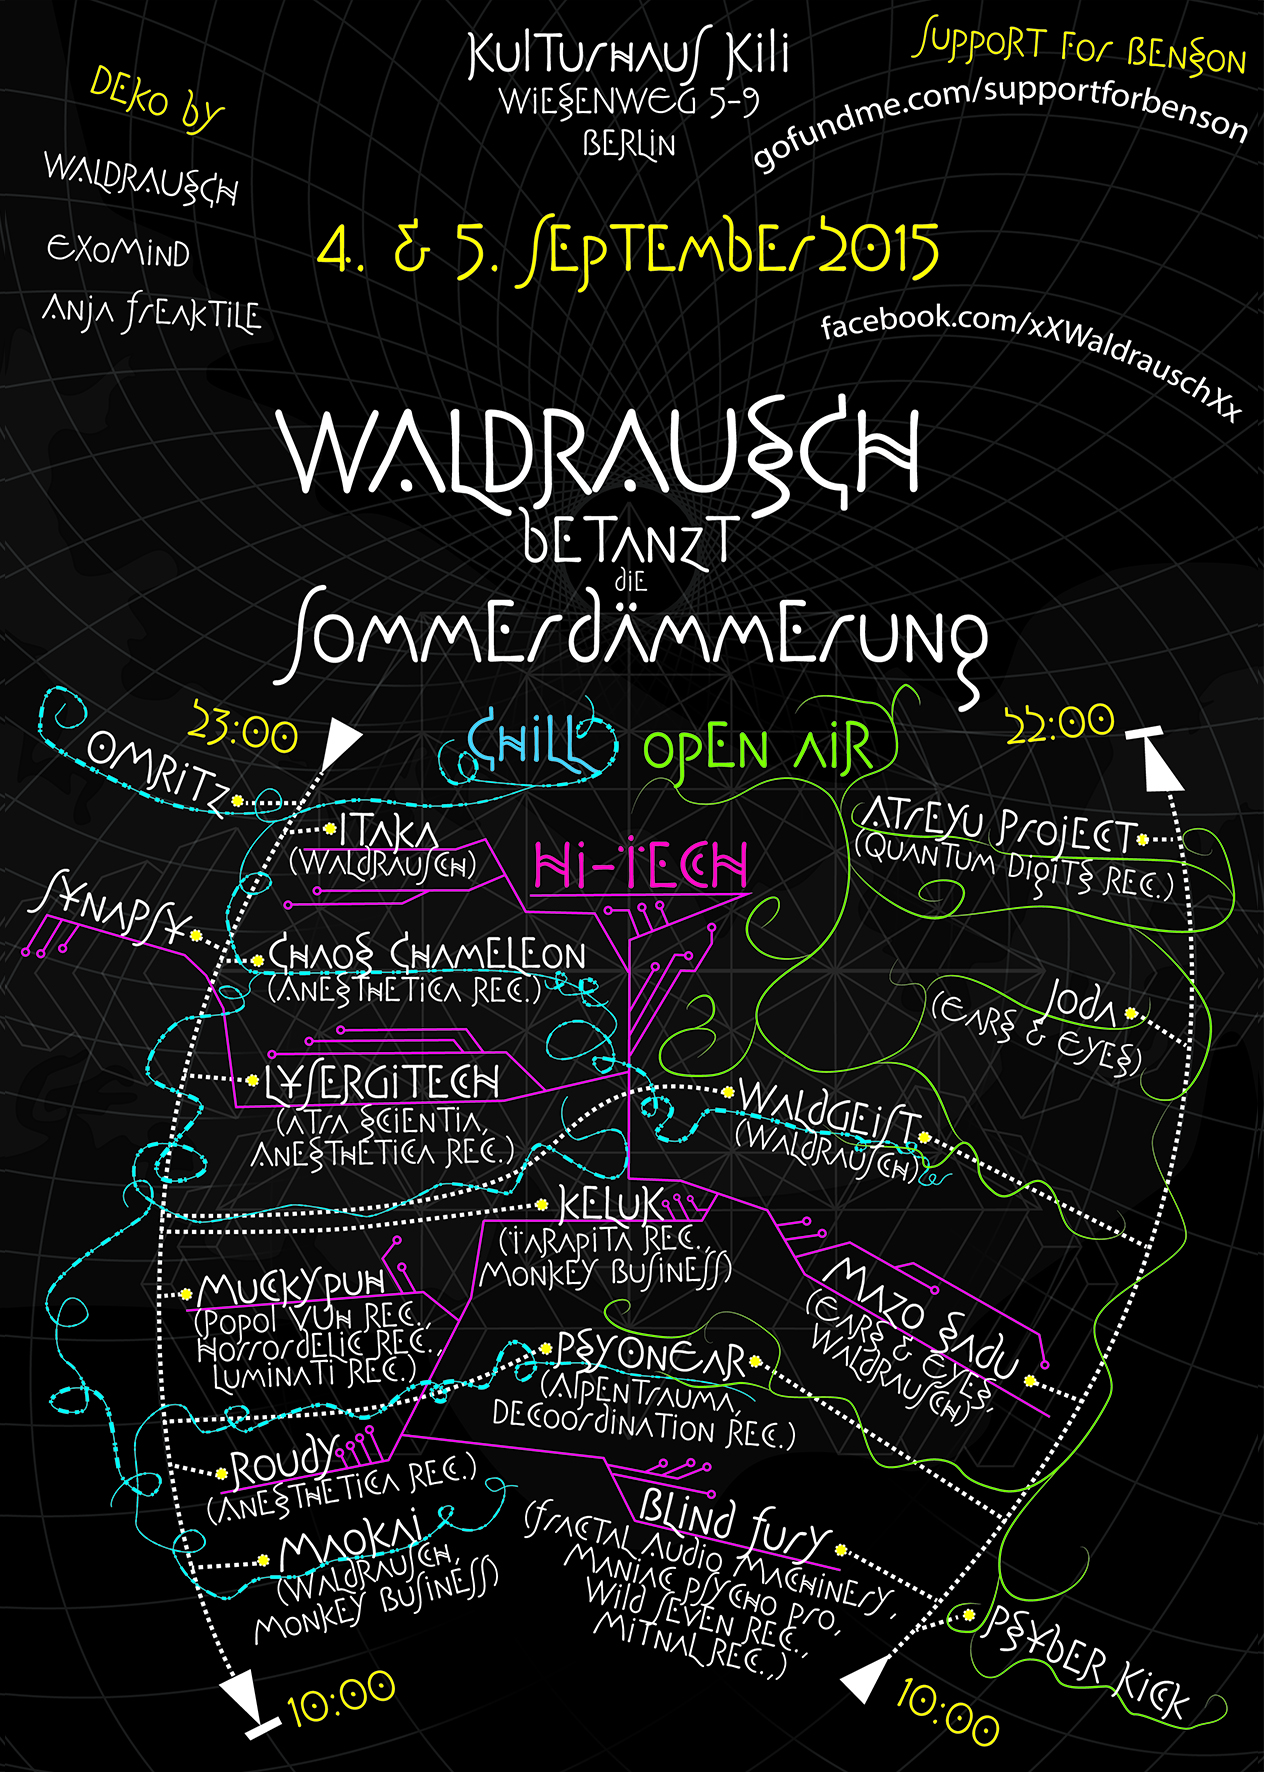 Kulturhaus Kili
Wiesenweg 5-9
Berlin
Support for Benson
gofundme.com/supportforbenson
Deko by
Waldrausch
Exomind
Anja Freaktile
4. & 5. September 2015
facebook.com/xXWaldrauschXx
Waldrausch
betanzt
die
Sommerdämmerung
23:00
Chill
Open Air
22:00
Omritz
Itaka
(Waldrausch)
Hi-Tech
Atreyu Project
(Quantum Digits Rec.)
Synapsy
Chaos Chameleon
(Anesthetica Rec.)
Joda
(Ears & Eyes)
Lysergitech
(Atra Scientia,
Anesthetica Rec.)
Waldgeist
(Waldrausch)
Keluk
(Tarapita Rec.,
Monkey Business)
Muckypuh
(Popol Vuh Rec.,
Horrordelic Rec.,
Luminati Rec.)
Mazo Sadu
(Ears & Eyes,
Waldrausch)
Psyonear
(Alpentrauma,
Decoordination Rec.)
Roudy
(Anesthetica Rec.)
Blind Fury
(Fractal Audio Machinery,
Maniac Psycho Pro,
Wild Seven Rec.,
Mitnal Rec.,)
Maokai
(Waldrausch,
Monkey Business)
Psyber Kick
10:00
10:00